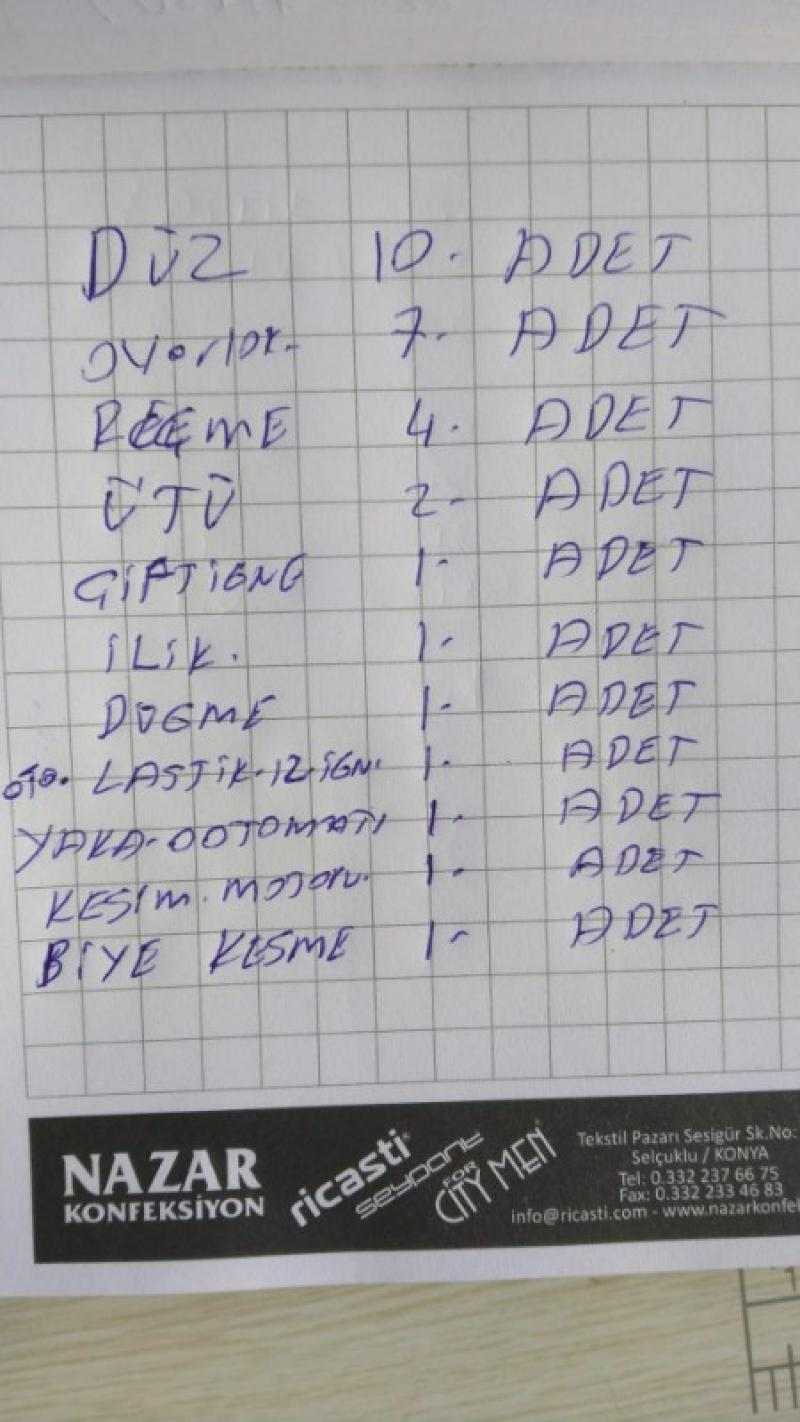 DÜZ 10. ADET
overlok. 7. ADET
REÇME 4. ADET
ÜTÜ 2- ADET
ÇİFTİĞNE 1- ADET
İLİK. 1- ADET
DÜGME 1- ADET
OTO. LASTİK-12-İGN. 1- ADET
YAKA-OOTOMATI 1- ADET
KESIM. MOTORU. 1- ADET
BİYE KESME 1- ADET
NAZAR
KONFEKSİYON
ricasti
seypant
FOR
CITY MEN
Tekstil Pazarı Sesigür Sk.No:
Selçuklu / KONYA
Tel: 0.332 237 66 75
Fax: 0.332 233 46 83
info@ricasti.com - www.nazarkonfek